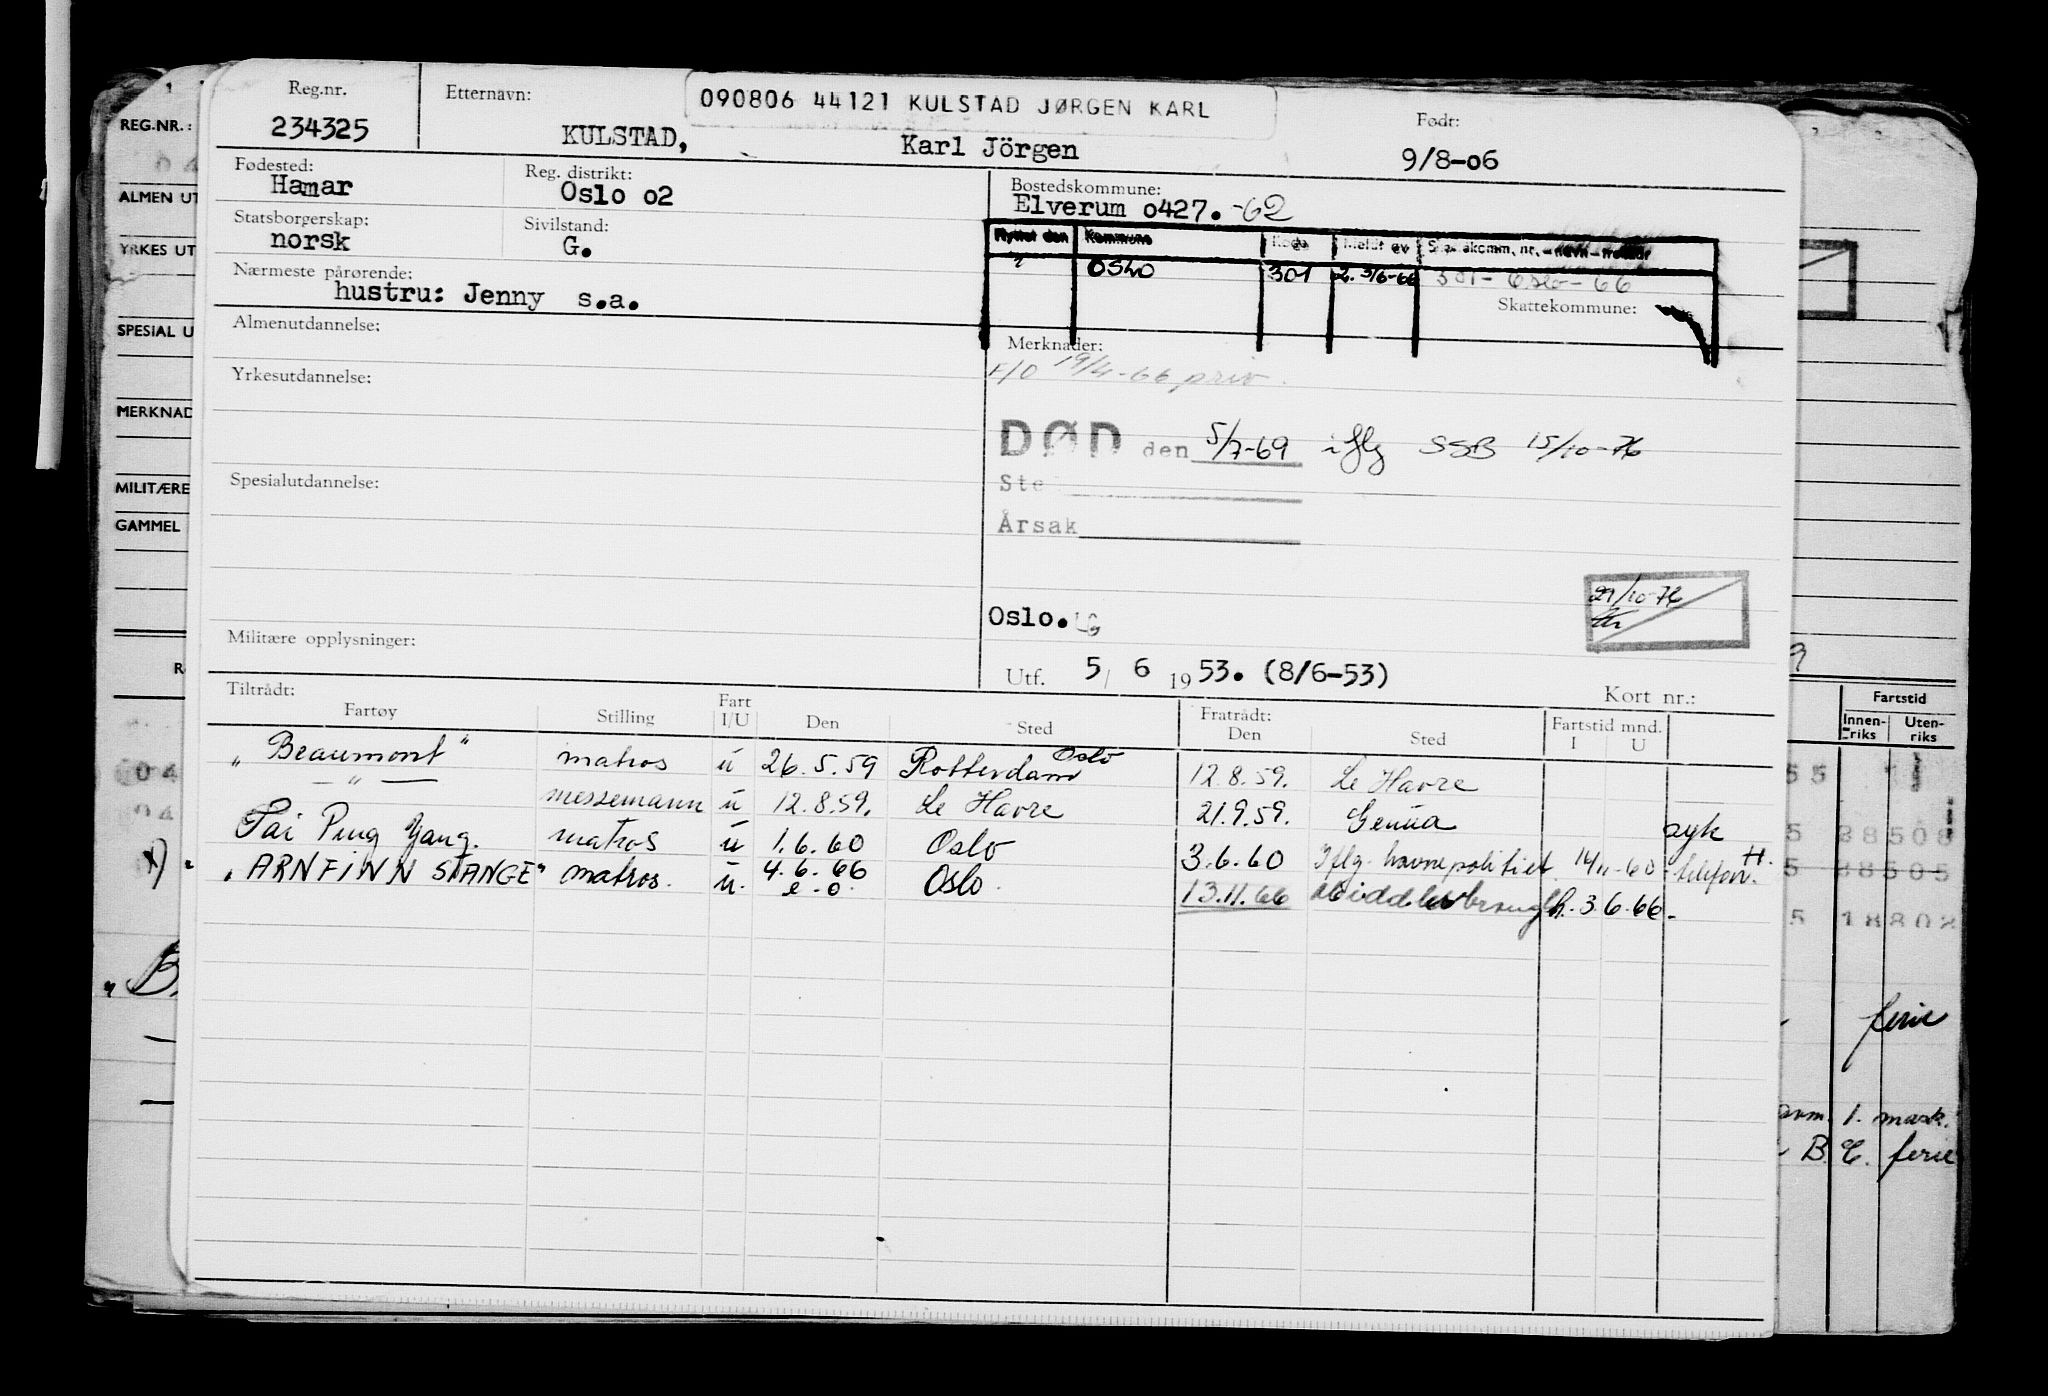 Reg.nr. Etternavn: 090806 44121 KULSTAD JØRGEN KARL Født:
234325 KULSTAD, Karl Jörgen 9/8-06
Fødested: Reg. distrikt: Bostedskommune:
Hamar Oslo 02 Elverum 0427. -62
Statsborgerskap: Sivilstand:
norsk G.
Flyttet den Kommune Kode Meldt av
" OSLO 301 2. 3/6-66 301 - Oslo - 66
Nærmeste pårørende: Skattekommune:
hustru: Jenny s.a.
Almenutdannelse: Merknader:
F/O 19/4-66 priv.
Yrkesutdannelse:
DØD den 5/7-69 iflg SSB 15/10-76
Spesialutdannelse: Ste
Årsak
29/10-76
Oslo.
Militære opplysninger:
Utf. 5/ 6 1953. (8/6-53)
Tiltrådt: Kort nr.:
Fartøy Stilling Fart I/U Den Sted Fratrådt: Den Sted Fartstid mnd. I U
"Beaumont" matros u 26.5.59 Rotterdam Oslo 12.8.59. Le Havre
— " — messemann u 12.8.59. Le Havre 21.9.59. Genua syk
Tai Ping Yang. matros u 1.6.60 Oslo 3.6.60 Iflg. havnepolitiet 14/11-60 telefon.
"ARNFINN STANGE" matros. u. 4.6.66 Oslo. 13.11.66 Middlesbrough. 3.6.66-
e.o.
REG.NR.:
04
ALMEN UT
YRKES UT
SPESIAL U
MERKNAD
MILITÆRE
GAMMEL
R
04
04
x)
"B.
9
Fartstid
Innen-riks Uten-riks
55
5 38508
5 38505
5 18802
ferie
1. mask.
B. ferie